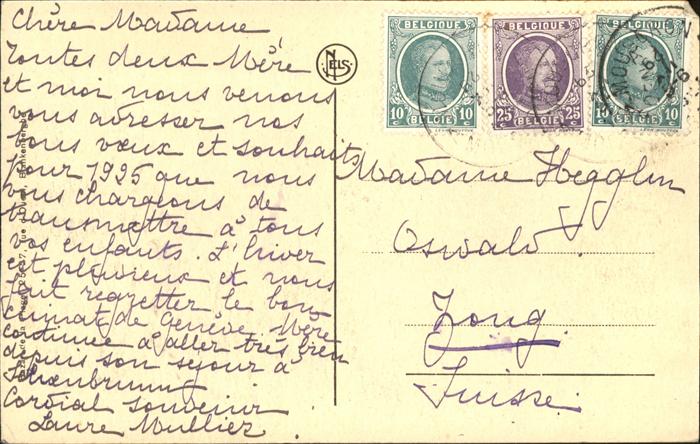 Chère Madame
Toutes deux Mère
et moi nous venons
vous adresser nos
bons vœux et souhaits
pour 1925 que nous
vous chargeons de
transmettre à tous
vos enfants. L'hiver
est pluvieux et nous
fait regretter le bon
climat de Genève. Mère
continue à aller très bien
depuis son séjour à
Schoenbrunn
Cordial souvenir
Laure Mullier
NELS
BELGIQUE
10 c 10 c
BELGIË
BELGIQUE
25 c 25 c
BELGIË
BELGIQUE
10 c 10 c
BELGIË
Madame Hegglin
Oswald
Zoug
Suisse.